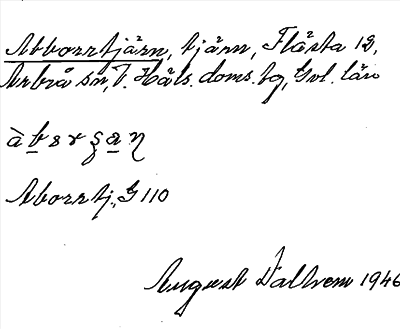 Abborrtjärn, tjärn, Flästa 12,
Arbrå sn, V. Häls. doms. tg, Gvl. län
Aborrtj., G 110
August 1946